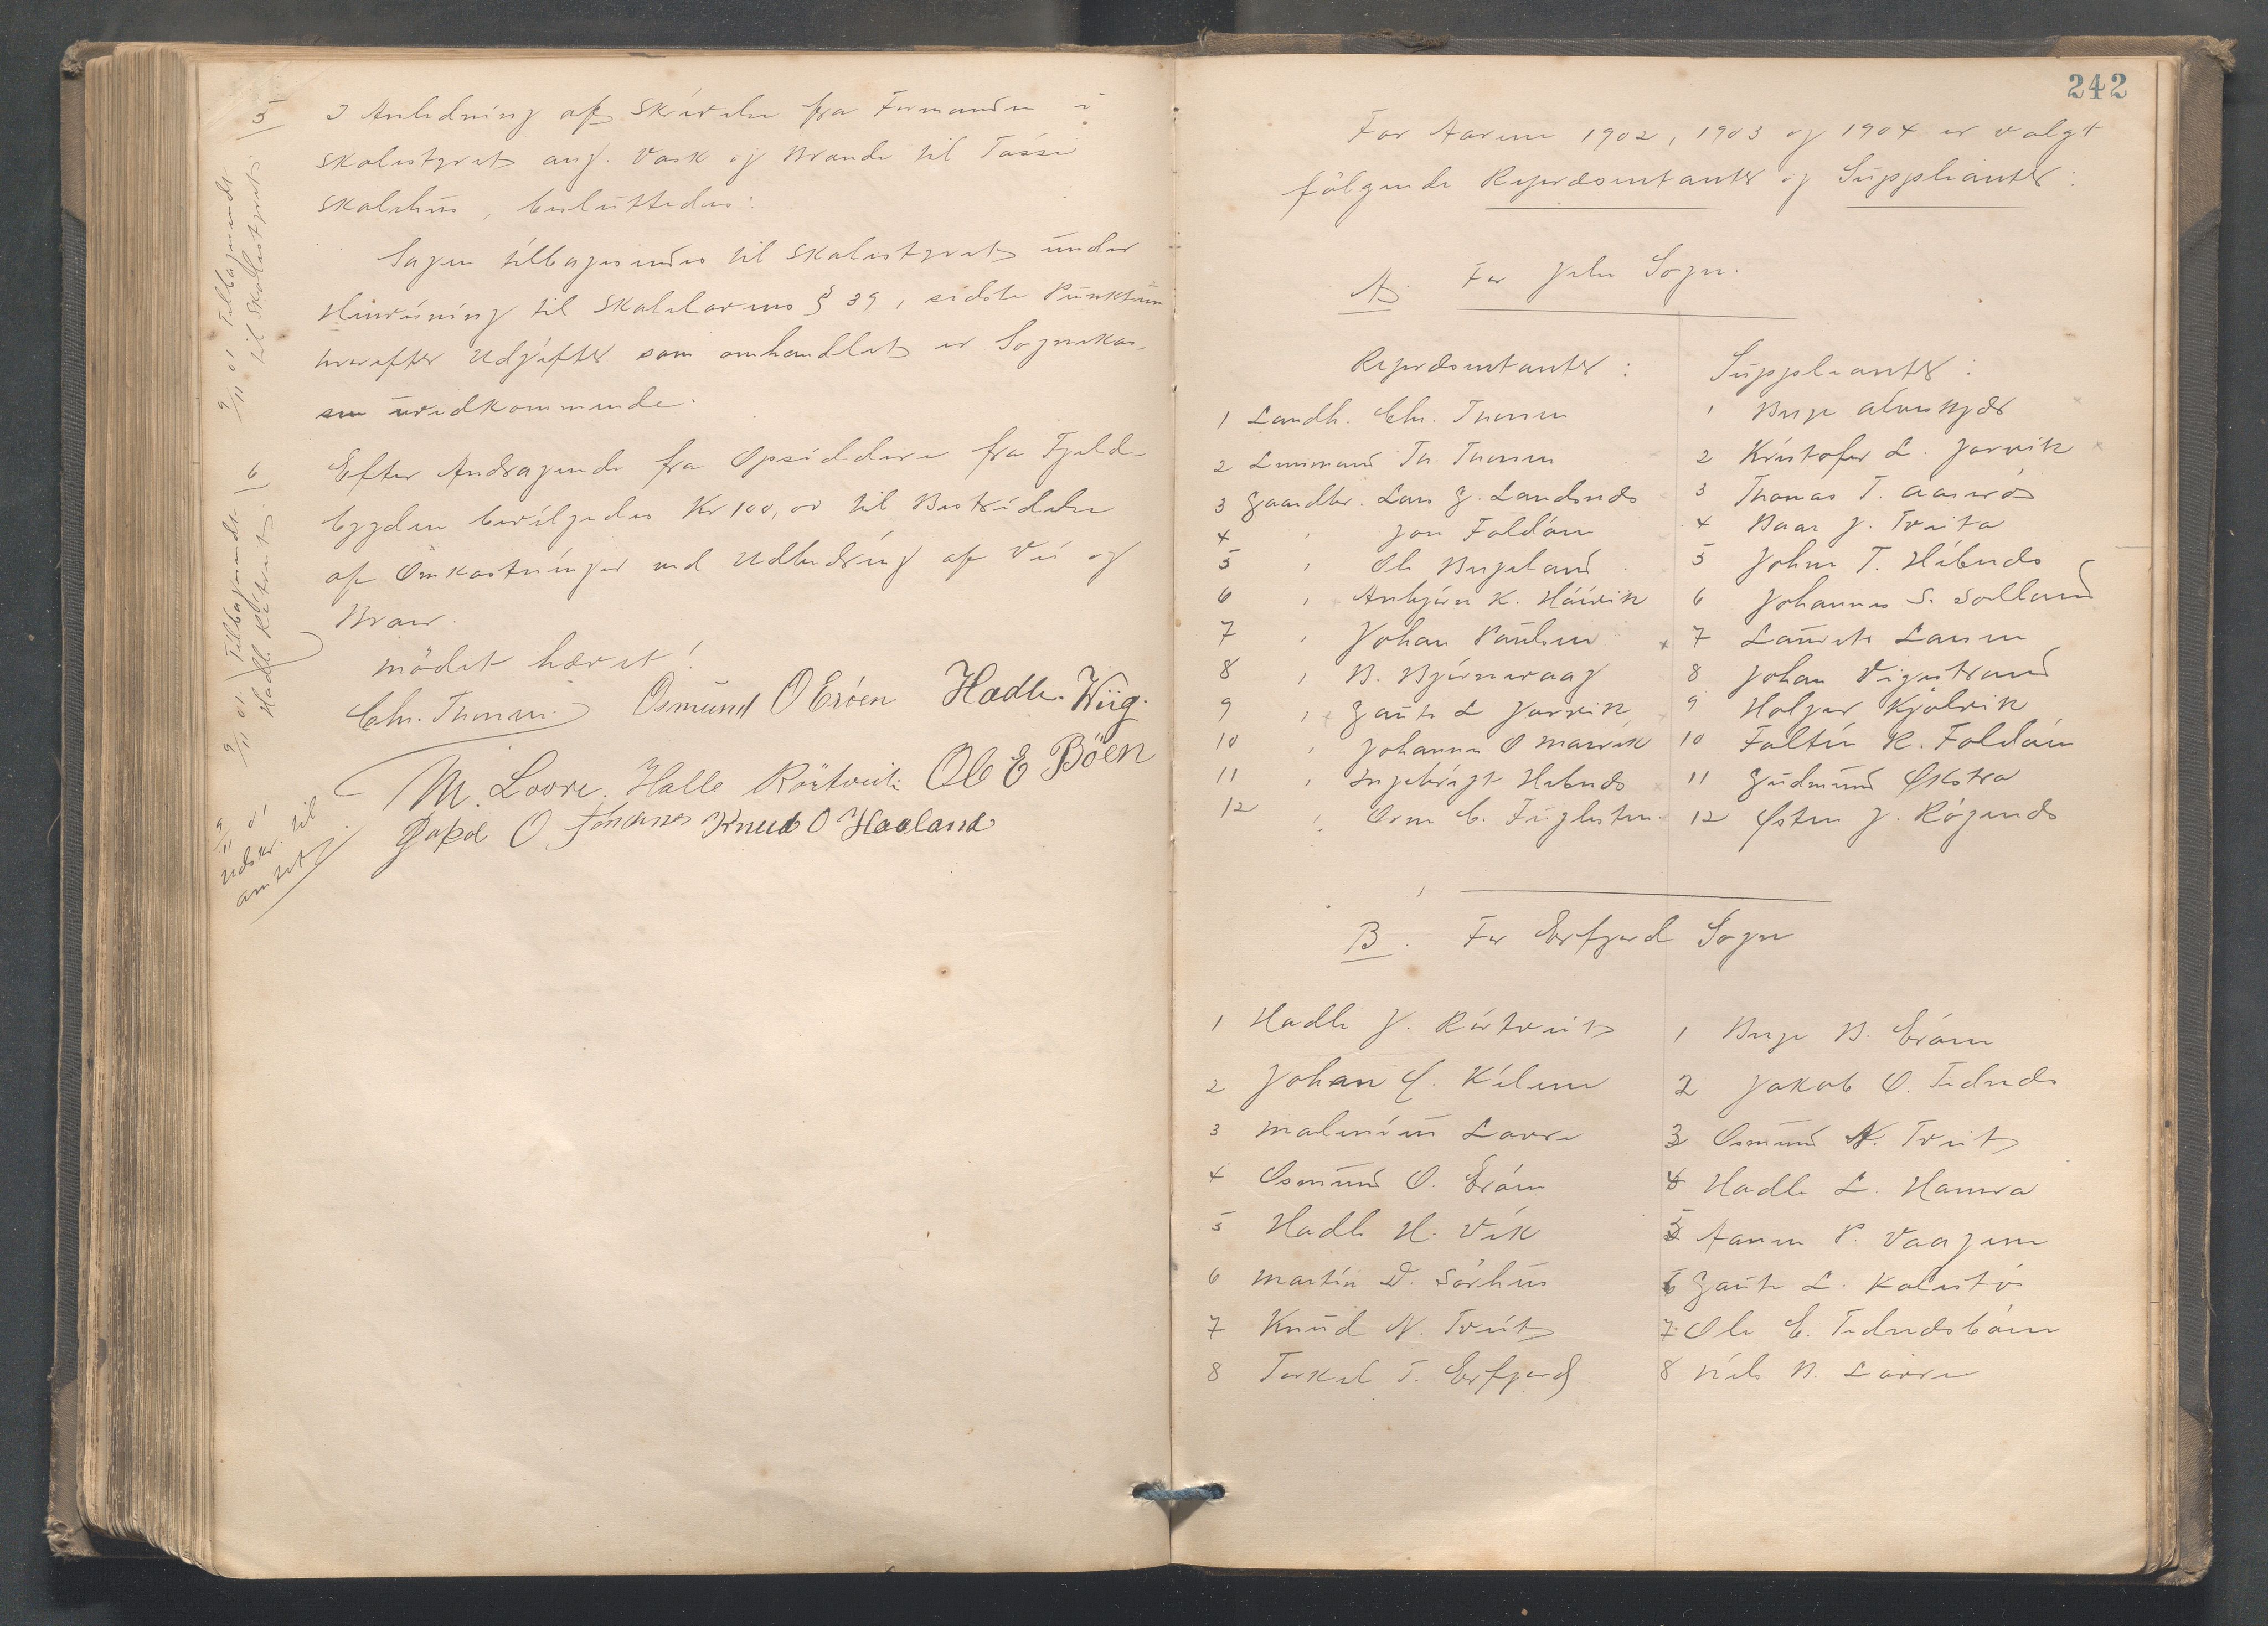 5 I Anledning af Skrivelse fra Formanden i
Skolestyret ang. Vask og Brænde til
Skolehus, besluttedes:
Sagen tilbagesendes til Skolestyret under
Henvisning til Skolelovens § 39, sidste Punktum
hvorefter Udgifter som omhandlet er Sognekas-
sen uvedkommende.
6 Efter Andragende fra Opsiddere fra Fjeld-
bygden bevilgedes Kr 100,00 til Bestridelse
af Omkostninger ved Udbedring af Vei og
Broer.
Mödet hævet!
Chr. Thomsen Osmund O Eröen Hadle Wiig.
M. Lovre. Halle Rörtveit Ole E Böen
O Knud O Haaland
9/11 01 Tilbagesendt
til Skolestyret.
9/11 01. Tilbagesendt
Hadle Rörtveit.
9/11 01
Udskr. til
amtet
242
For Aarene 1902, 1903 og 1904 er valgt
fölgende Repræsentanter og Suppleanter:
A. For Jelse Sogn.
Repræsentanter: Suppleanter:
1 Landh. Chr. Thomsen 1 Birge
2 Lensmand Th. Thomsen 2 Kristofer L. Jorvik
3 Gaardbr. Lars G. Landsnes 3 Thomas T.
4 " Jon Foldöen 4 Baar J. Tveita
5 " Ole Birgeland 5 Johan T. Hebnes
6 " Asbjörn K. Höivik 6 Johannes S. Solland
7 " Johan Paulsen 7 Laurits Larsen
8 " B. Björnevaag 8 Johan Vigestrand
9 " Gaute L Jorvik 9 Holger Kjölvik
10 " Johannes O Marvik 10 Foltin K. Foldöen
11 " Ingebrigt Hebnes 11 Gudmund Økstra
12 " Orm E. Fuglesteen 12 Østen J. Rögenes
B. For Erfjord Sogn
1 Hadle J. Rörtveit 1 Birge B. Eröen
2 Johan C. Kilen 2 Jakob O. Tednes
3 Malenius Lovre 3 Osmund N. Tveit
4 Osmund O. Eröen 4 Hadle L. Hamra
5 Hadle H. Vik 5 Aanen P. Vaagen
6 Martin D. Sörhus 6 Gaute L. Kolestö
7 Knud N. Tveit 7 Ole E. Tednesböen
8 Torkel T. Erfjord 8 Nils B. Lovre